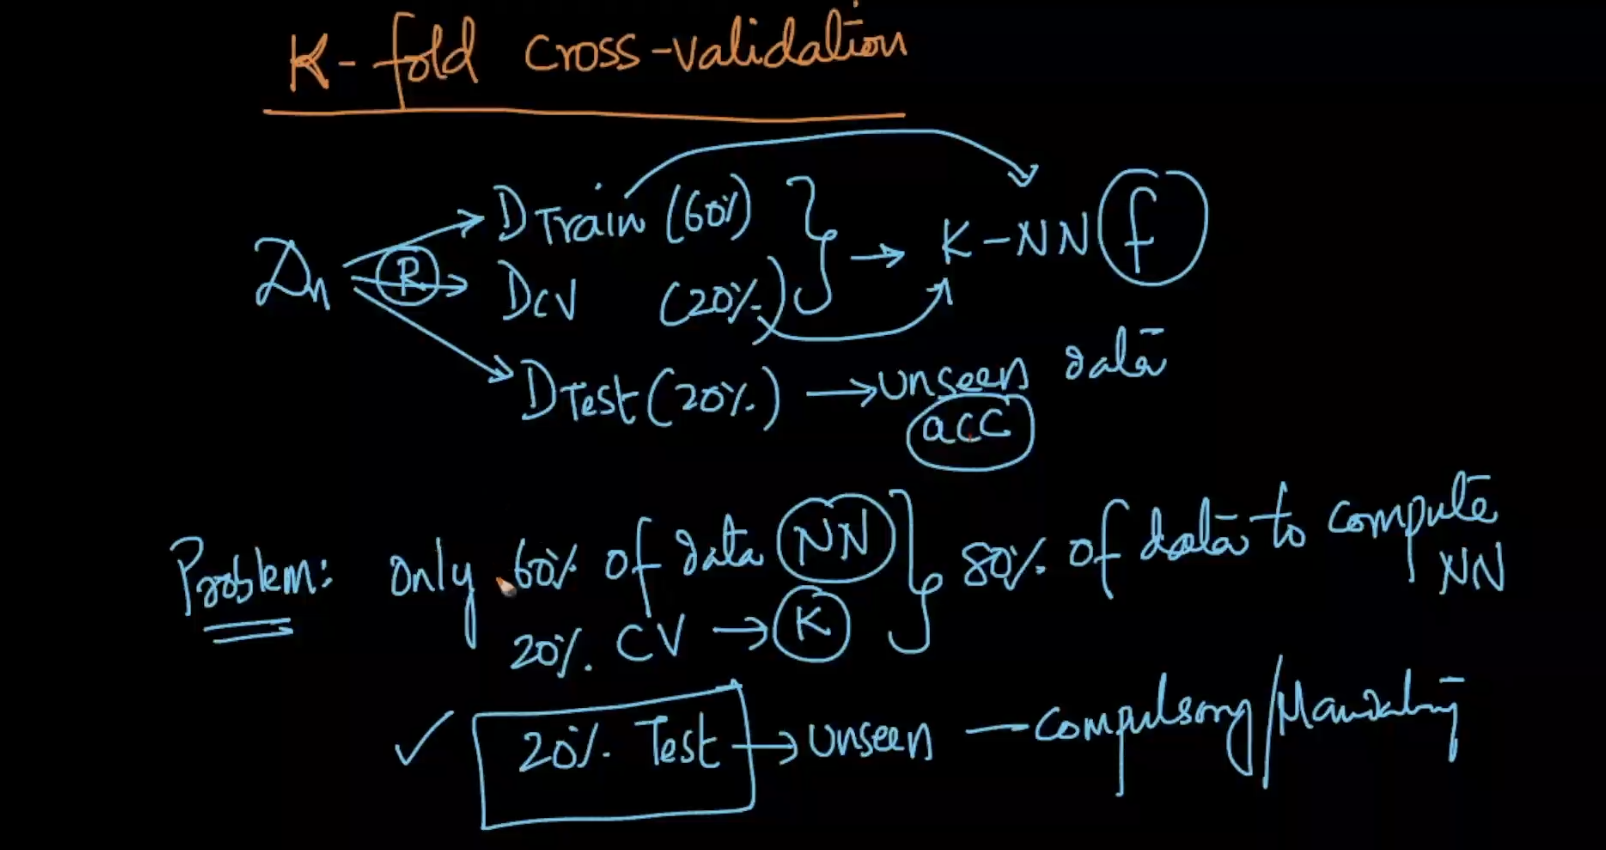 K-fold cross-validation
Dn R DTrain (60%) K-NN f
DCV (20%)
DTest (20%) unseen data
acc
Problem: only 60% of data NN 80% of data to compute NN
20% CV K
20% Test unseen compulsory/Mandatory